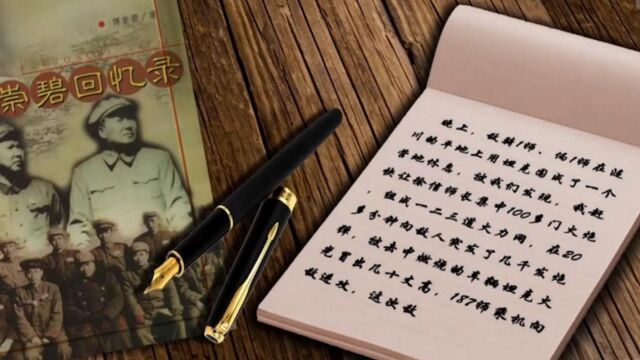 傅崇碧/著
崇碧回忆录
晚上，敌骑1师、伪1师在涟
川的平地上用坦克围成了一个
营地休息，被我们发现，我赶
快让徐信师长集中100多门火炮
，组成一二三道火力网，在20
多分钟向敌人突发了几千发炮
弹，被击中燃烧的车辆坦克火
光冒出几十丈高，187师乘机向
敌进攻，这次敌